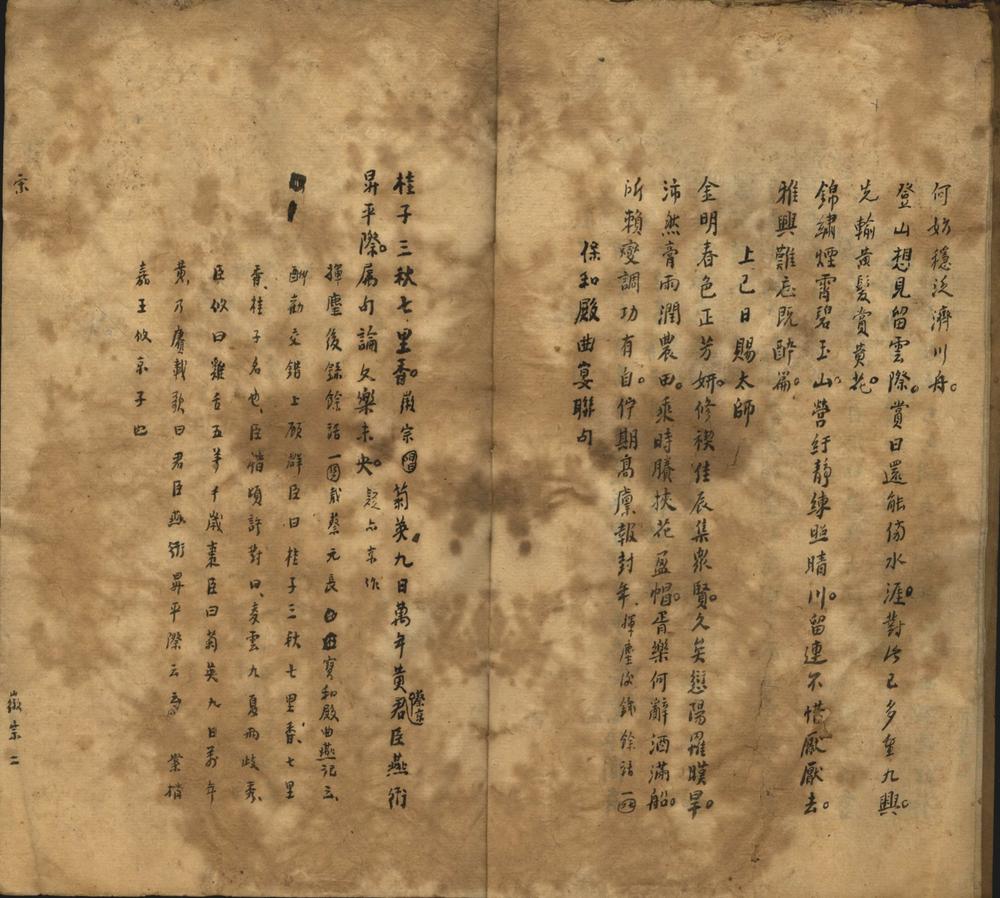 何如穩泛濟川舟。
登山想見留雲際。賞日還能傍水涯。對此已多重九興。
先輸黃髮賞黃花。
錦繡煙霄碧玉山。縈紆靜練照晴川。留連不惜厭厭去。
雅興難忘既醉篇。
上巳日賜太師
金明春色正芳妍。修禊佳辰集眾賢。久矣愆陽罹暵旱。
沛然膏雨潤農田。乘時賸挾花盈帽。胥樂何辭酒滿船。
所賴燮調功有自。佇期高廩報封年。揮麈後錄餘話一
保和殿曲宴聯句
桂子三秋七里香。徽宗菊英九日萬年黃蔡京君臣燕衎
昇平際。屬句論文樂未央。疑亦京作
揮麈後錄餘話一載蔡元長保和殿曲燕記云、
酬勸交錯上顧群臣曰桂子三秋七里香、七里
香、桂子名也、臣楷頃許對曰、麥雲九夏兩歧秀、
臣攸曰雞舌五年千歲棗臣曰菊英九日萬年
黃乃賡載歌曰君臣燕衎昇平際云云、案楷
嘉王攸京子也
宗
徽宗二